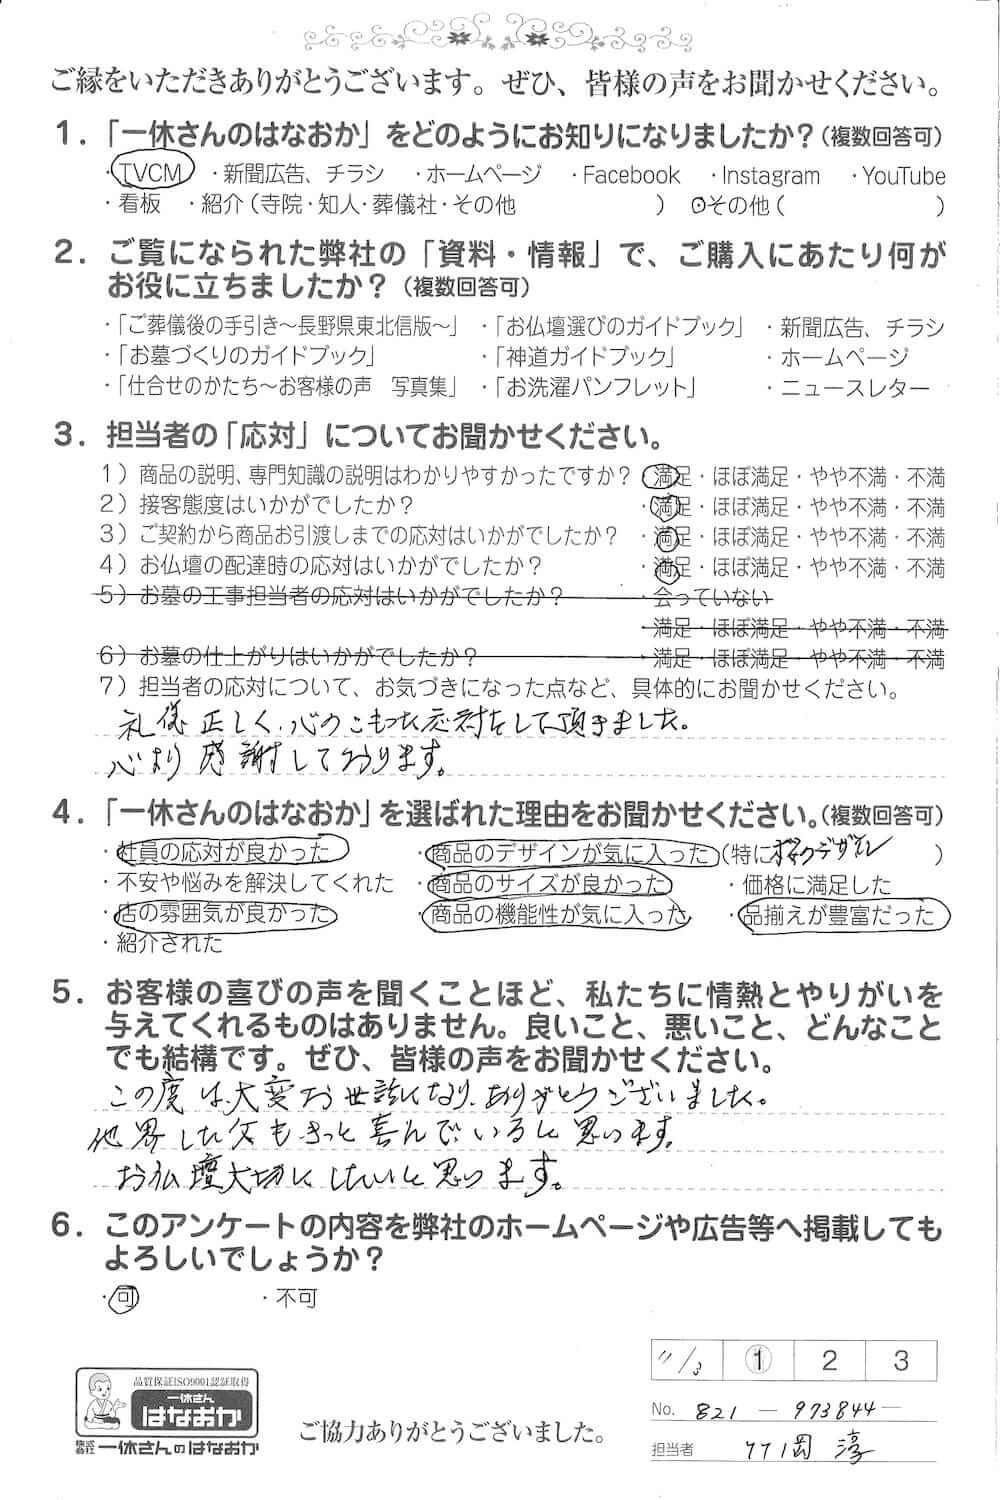 ご縁をいただきありがとうございます。ぜひ、皆様の声をお聞かせください。
1.「一休さんのはなおか」をどのようにお知りになりましたか?(複数回答可)
・TVCM ・新聞広告、チラシ ・ホームページ ・Facebook ・Instagram ・YouTube
・看板 ・紹介(寺院・知人・葬儀社・その他 ) ⊙その他( )
2.ご覧になられた弊社の「資料・情報」で、ご購入にあたり何が
お役に立ちましたか?(複数回答可)
・「ご葬儀後の手引き〜長野県東北信版〜」 ・「お仏壇選びのガイドブック」 ・新聞広告、チラシ
・「お墓づくりのガイドブック」 ・「神道ガイドブック」 ・ホームページ
・「仕合せのかたち〜お客様の声 写真集」 ・「お洗濯パンフレット」 ・ニュースレター
3.担当者の「応対」についてお聞かせください。
1)商品の説明、専門知識の説明はわかりやすかったですか? ・満足・ほぼ満足・やや不満・不満
2)接客態度はいかがでしたか? ・満足・ほぼ満足・やや不満・不満
3)ご契約から商品お引渡しまでの応対はいかがでしたか? ・満足・ほぼ満足・やや不満・不満
4)お仏壇の配達時の応対はいかがでしたか? ・満足・ほぼ満足・やや不満・不満
5)お墓の工事担当者の応対はいかがでしたか? ・会っていない
・満足・ほぼ満足・やや不満・不満
6)お墓の仕上がりはいかがでしたか? ・満足・ほぼ満足・やや不満・不満
7)担当者の応対について、お気づきになった点など、具体的にお聞かせください。
礼儀正しく、心のこもった応対をして頂きました。
心より感謝しております。
4.「一休さんのはなおか」を選ばれた理由をお聞かせください。(複数回答可)
・社員の応対が良かった ・商品のデザインが気に入った(特に デザイン )
・不安や悩みを解決してくれた ・商品のサイズが良かった ・価格に満足した
・店の雰囲気が良かった ・商品の機能性が気に入った ・品揃えが豊富だった
・紹介された
5.お客様の喜びの声を聞くことほど、私たちに情熱とやりがいを
与えてくれるものはありません。良いこと、悪いこと、どんなこと
でも結構です。ぜひ、皆様の声をお聞かせください。
この度は、大変お世話になり、ありがとうございました。
他界した父もきっと喜んでいると思います。
お仏壇大切にしたいと思います。
6.このアンケートの内容を弊社のホームページや広告等へ掲載しても
よろしいでしょうか?
・可 ・不可
11/3 1 2 3
品質保証ISO9001認証取得
一休さん
はなおか
株式会社 一休さんのはなおか
ご協力ありがとうございました。
No. 821 — 973844 —
担当者 岡 淳